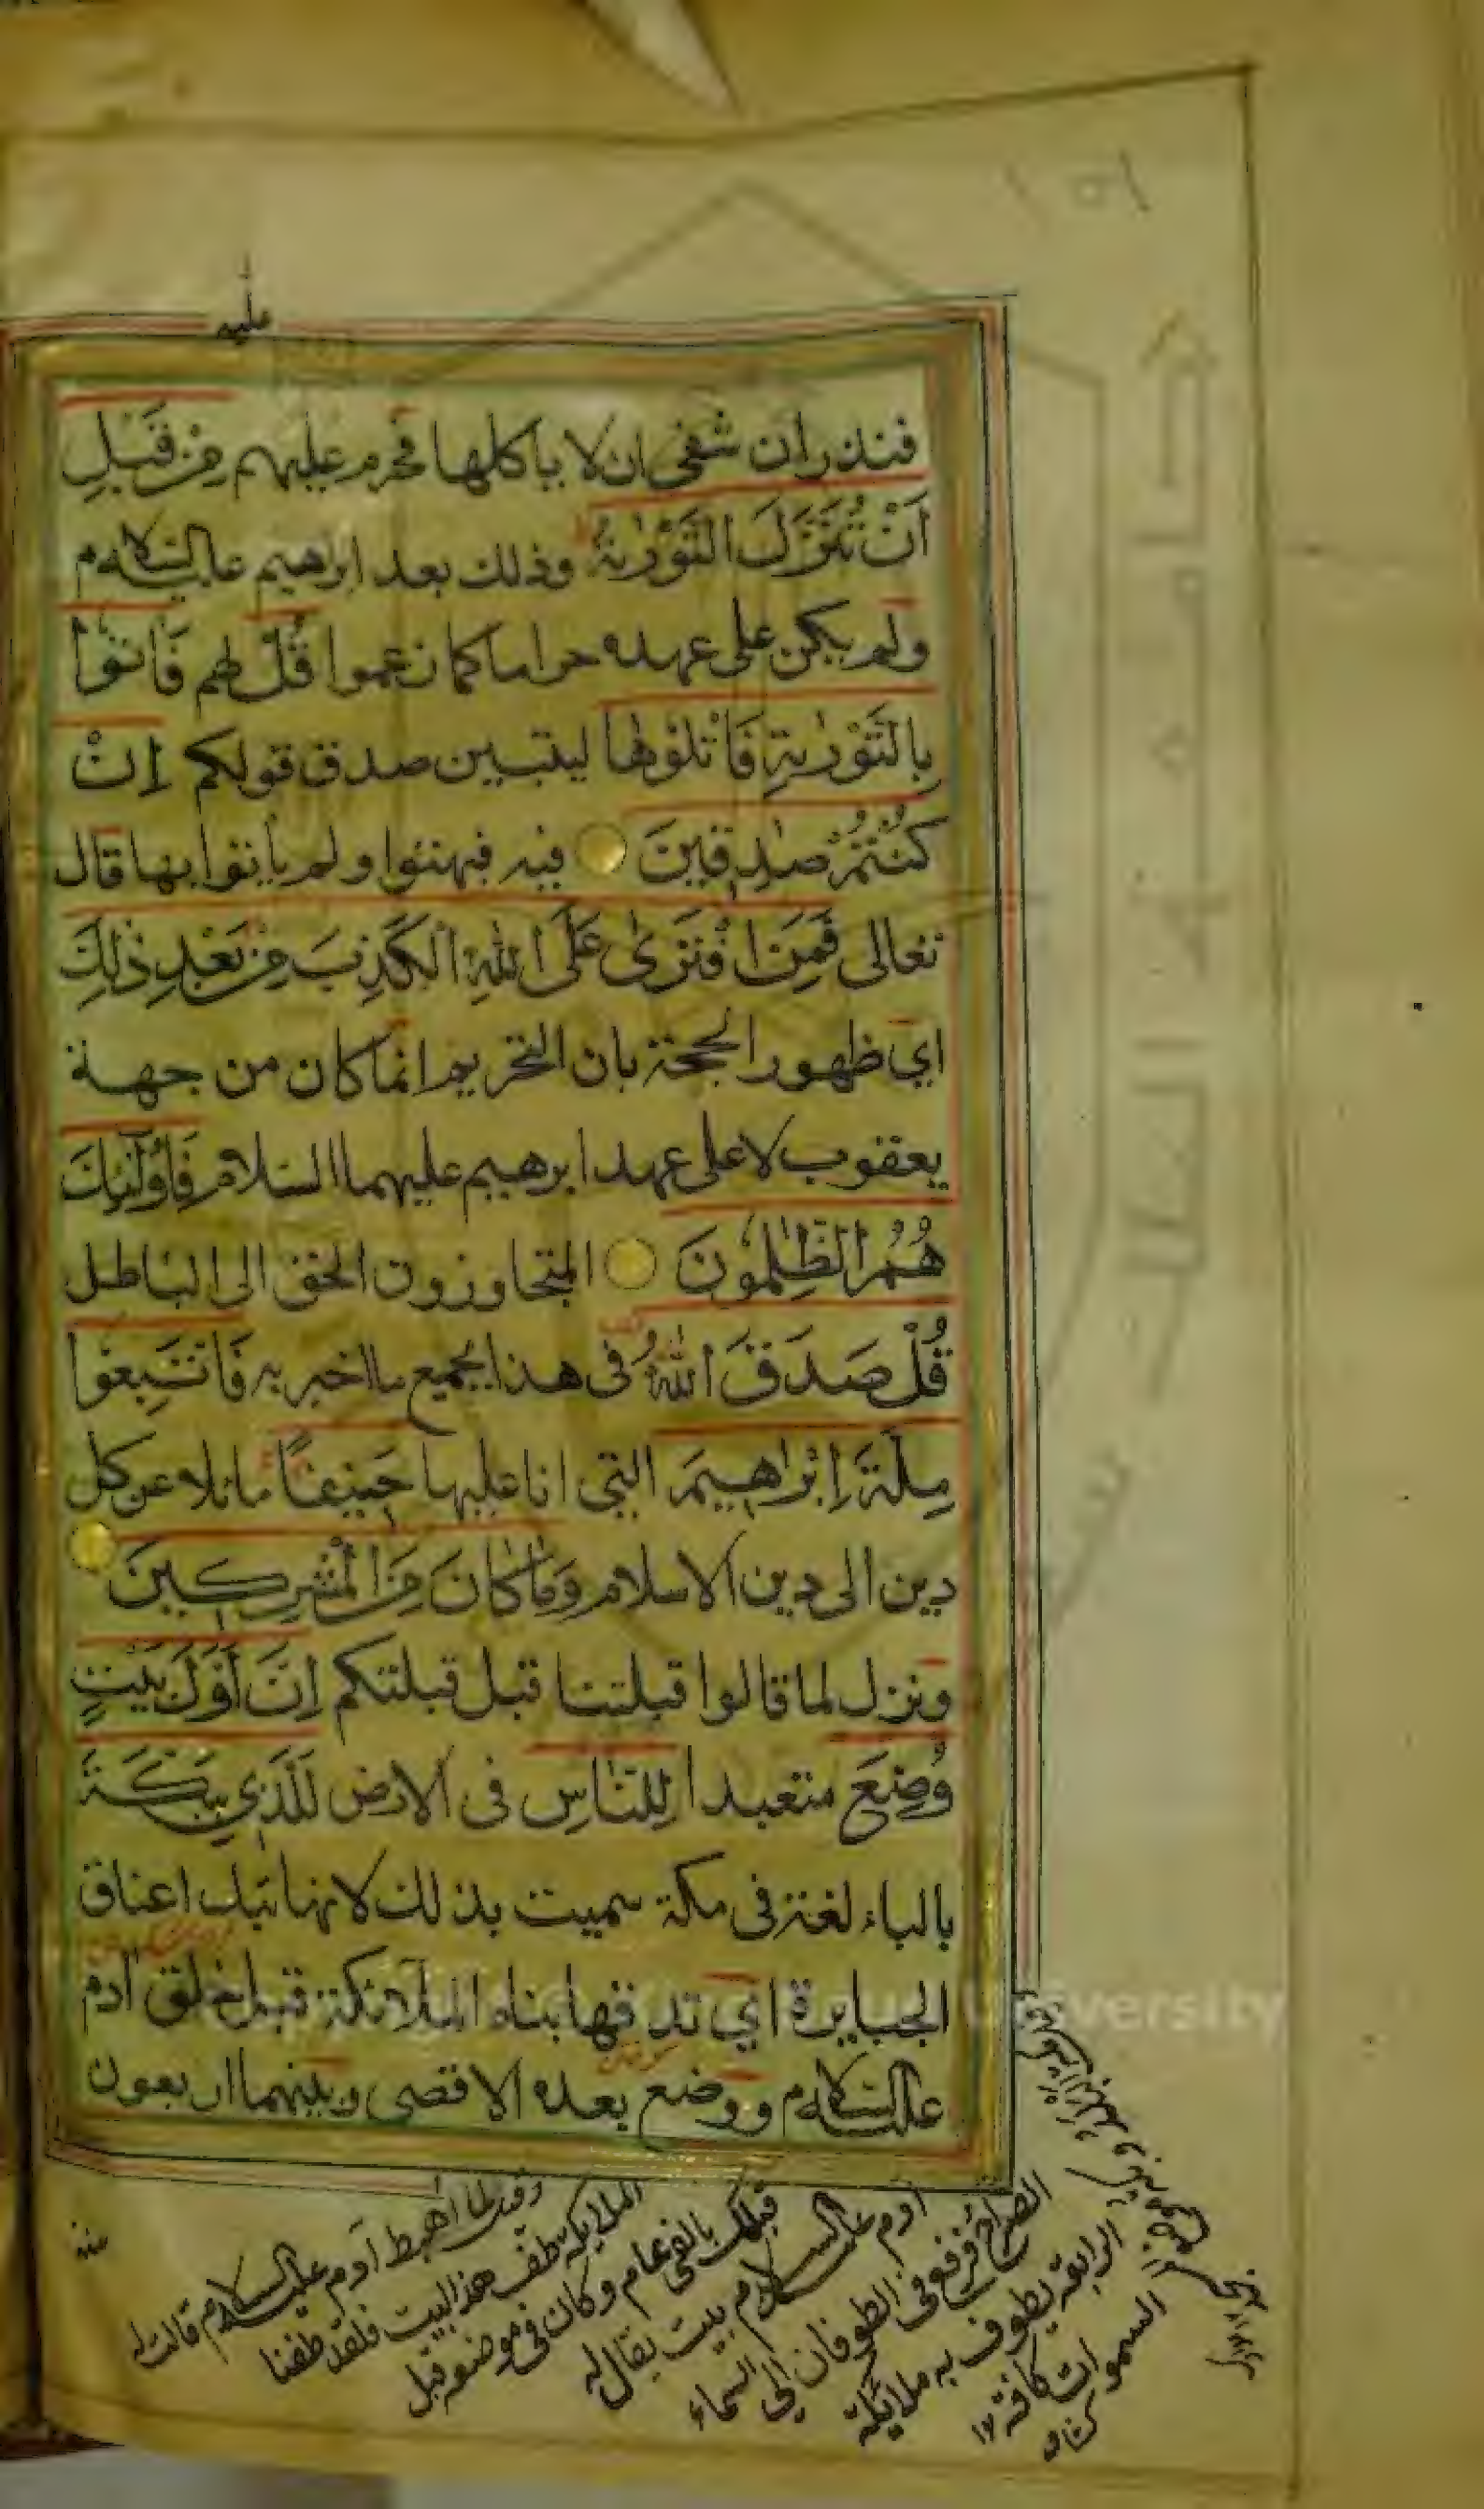 ١٥١
عليه
فنذر ان شفى ان لا يأكلها فحرم عليهم مِنْ قَبْلِ
اَنْ تُنَزَّلَ التَّوْرٰيةُ وذلك بعد ابراهيم عليه السلام
ولم يكن على عهده حراما كما زعموا قُلْ لهم فَأْتُوْا
بِالتَّوْرٰيةِ فَاتْلُوْهَا ليتبين صدق قولكم اِنْ
كُنْتُمْ صٰدِقِينَ فيه فبهتوا ولم يأتوا بها قال
تعالى فَمَنِ افْتَرٰى عَلَى اللهِ الْكَذِبَ مِنْ بَعْدِ ذٰلِكَ
اي ظهور الحجة بان التحريم انما كان من جهة
يعقوب لا على عهد ابرهيم عليهما السلام فَاُولٰٓئِكَ
هُمُ الظّٰلِمُونَ المتجاوزون الحق الى الباطل
قُلْ صَدَقَ اللهُ فى هذا كجميع ما اخبر به فَاتَّبِعُوا
مِلَّةَ اِبْرَاهِيمَ التي انا عليها حَنِيفًا مائلا عن كل
دين الى دين الاسلام وَمَا كَانَ مِنَ الْمُشْرِكِينَ
ونزل لما قالوا قبلتنا قبل قبلتكم اِنَّ اَوَّلَ بَيْتٍ
وُضِعَ متعبدا لِلنَّاسِ فى الارض لَلَّذِي بِبَكَّةَ
بالباء لغة فى مكة سميت بذلك لانها تبك اعناق
الجبابرة اي تدقها بناه الملائكة قبل خلق آدم
عليه السلام ووضع بعده الاقصى وبينهما اربعون
سنة
وقيل لما اهبط آدم عليه السلام قالت له
الملايكة طف هذا البيت فلقد طفنا
قبلك بالفي عام وكان في موضعه قبل
آدم عليه السلام بيت يقال له
الضراح فرفع في الطوفان الى السماء
الرابعة يطوف به ملائكة
السموات كافة ١٢
كشاف